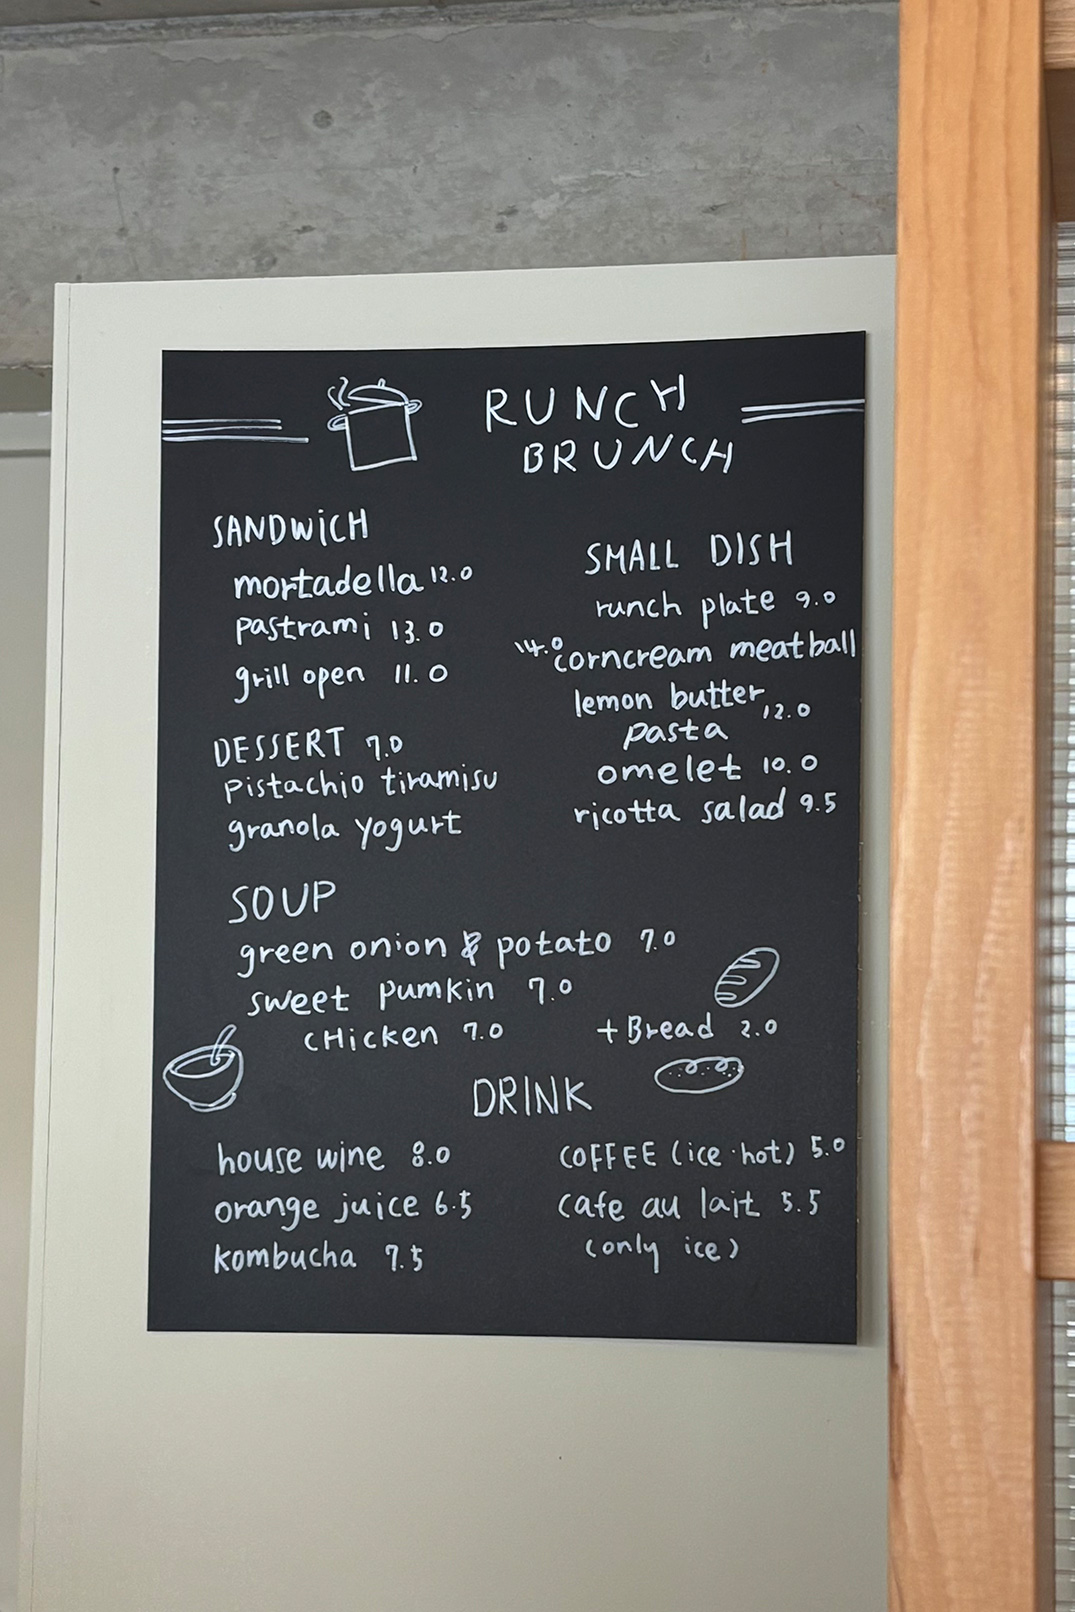 RUNCH
BRUNCH
SANDWiCH
mortadella 12.0
pastrami 13.0
grill open 11.0
DESSERT 7.0
pistachio tiramisu
granola yogurt
SMALL DISH
runch plate 9.0
14.0 corncream meatball
lemon butter 12.0
pasta
omelet 10.0
ricotta salad 9.5
SOUP
green onion & potato 7.0
sweet pumkin 7.0
cHicken 7.0
+Bread 2.0
DRINK
house wine 8.0
orange juice 6.5
kombucha 7.5
COFFEE (ice·hot) 5.0
cafe au lait 5.5
(only ice)